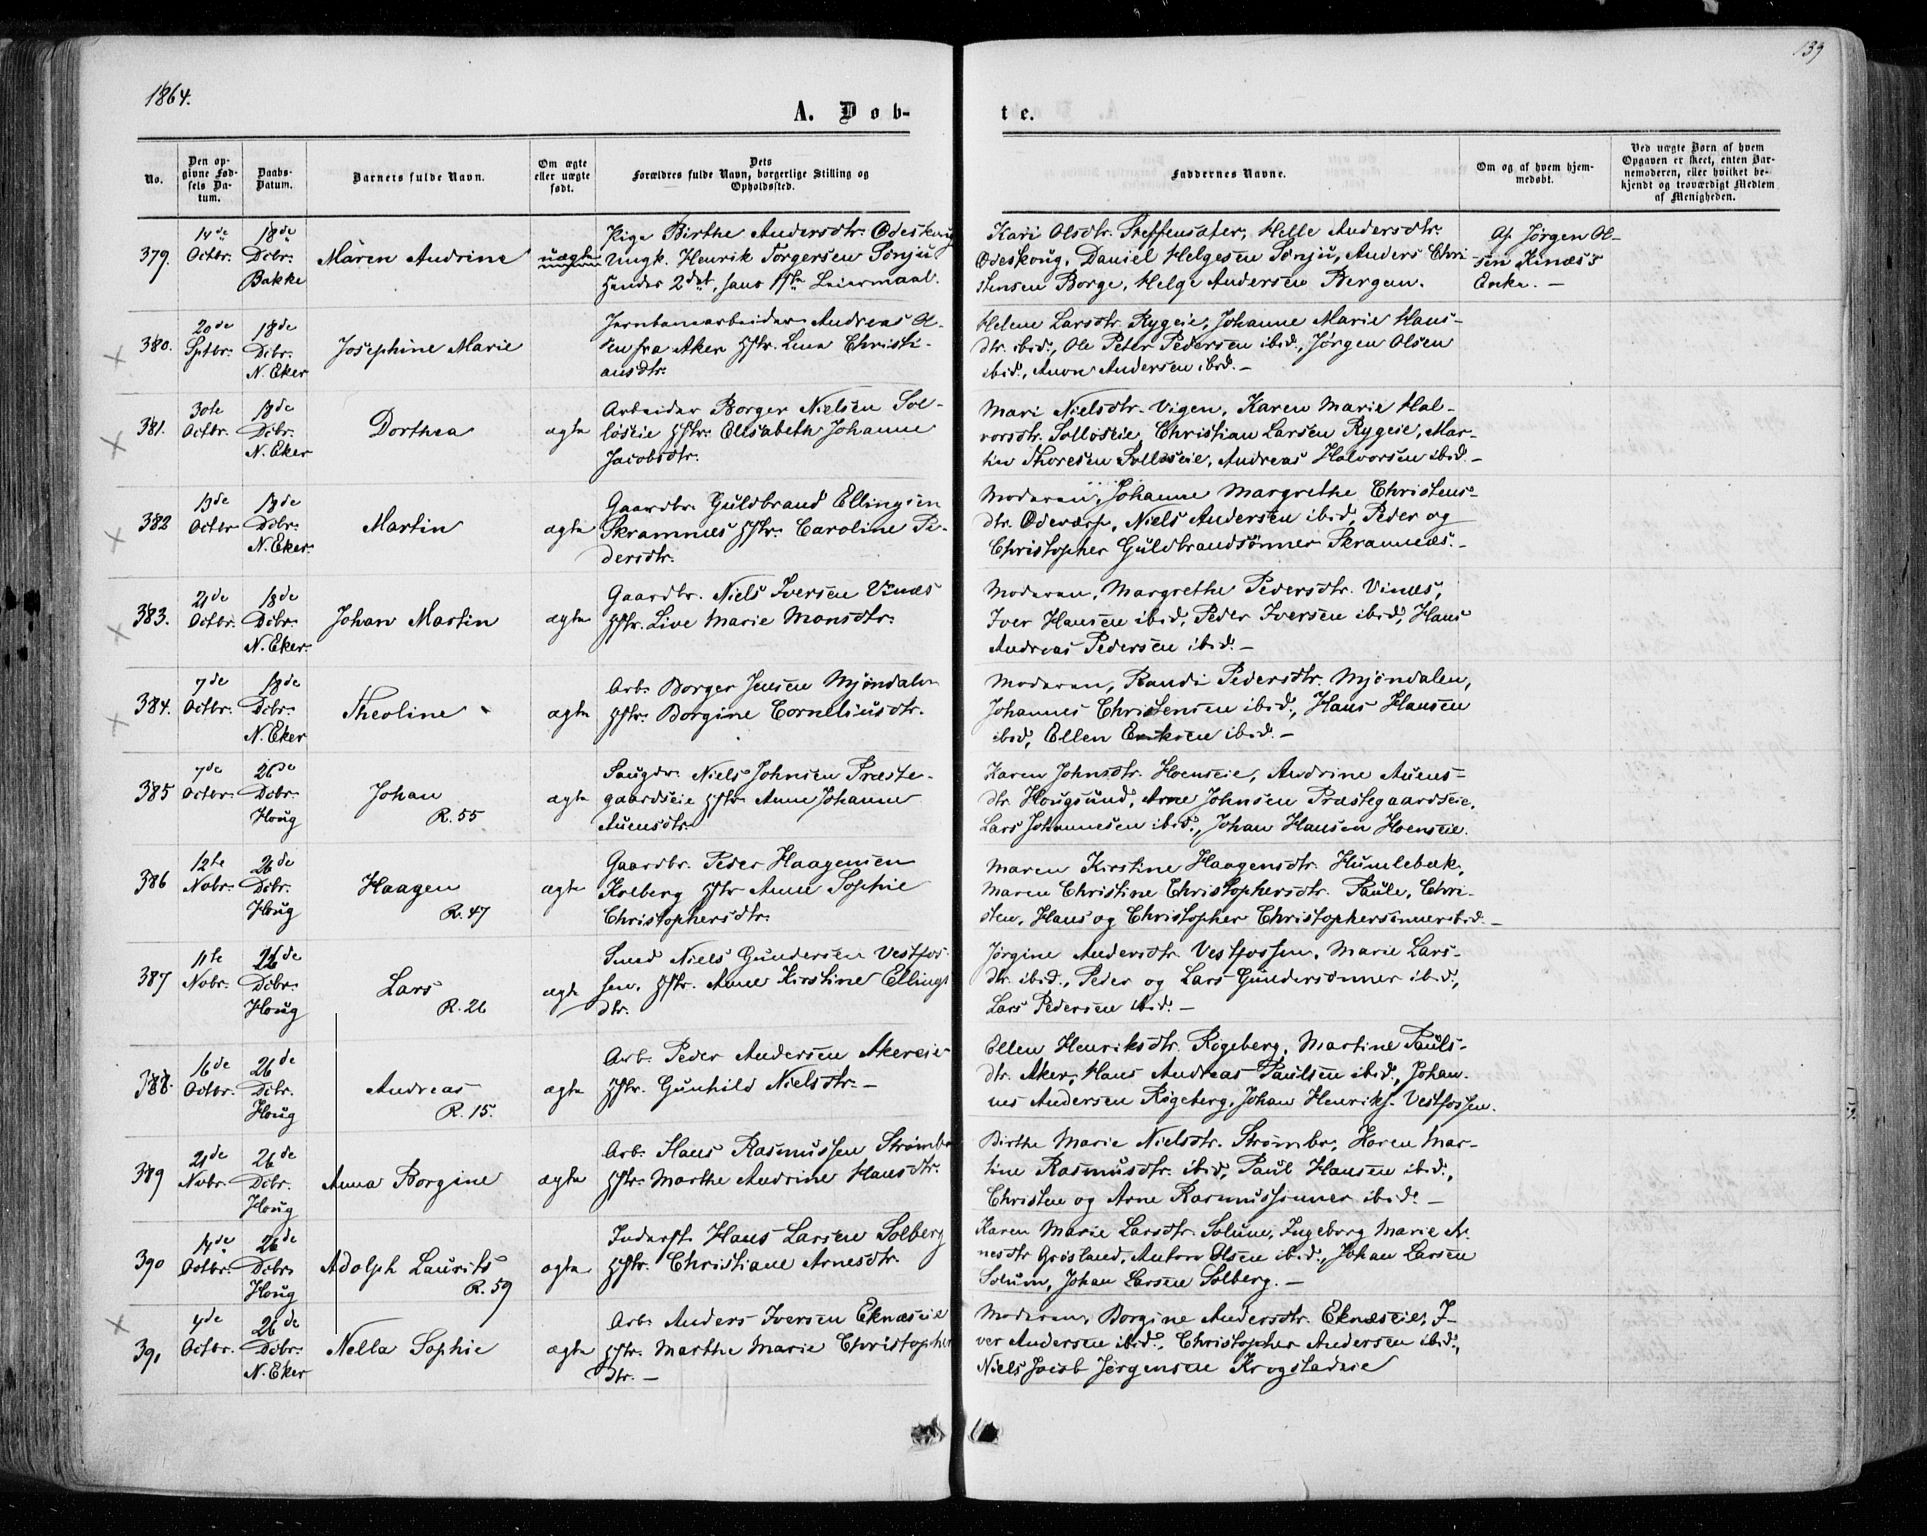 1864.
139
A. Døb-
te.
No.
Den op-
givne Fød-
sels Da-
tum.
Daabs-
Datum.
Barnets fulde Navn.
Om ægte
eller uægte
født.
Dets
Forældres fulde Navn, borgerlige Stilling og
Opholdssted.
Faddernes Navne.
Om og af hvem hjem-
medøbt.
Ved uægte Børn af hvem
Opgaven er skeet, enten Bar-
nemoderen, eller hvilket be-
kjendt og troværdigt Medlem
af Menigheden.
379.
14de
Octbr.
18de
Dcbr.
Bakke
Maren Andrine
uægte
Pige Birthe Andersdtr. Ødeskoug
Ungk. Henrik Torgersen Sønju
Hendes 2det, hans 1ste Leiermaal.
Kari Olsdtr. Steffensæter, Helle Andersdtr.
Ødeskoug, Daniel Helgesen Sønju, Anders Chri-
stensen Borge, Helge Andersen Bergan.
Af Jørgen Ol-
sen Kinæs's
Enke. -
380.
20de
Sptbr.
18de
Dcbr.
N. Eker
Josephine Marie
Jernbanearbeider Andreas Ol-
sen fra Aker Hstr. Lena Christi-
ansdtr.
Helene Larsdtr. Rygeie, Johanne Marie Hans-
dtr. ibid., Ole Peter Pedersen ibid., Jørgen Olsen
ibid., Anon Andersen ibid. -
381.
30te
Octbr.
18de
Dcbr.
N. Eker
Dorthea
ægte
Arbeider Borger Nielsen Sol-
løseie Hstr. Elisabeth Johanne
Jacobsdtr.
Mari Nielsdtr. Vigen, Karen Marie Hal-
vorsdtr. Solløseie, Christian Larsen Rygeie, Mar-
tin Thoresen Solløseie, Andreas Halvorsen ibid. -
382
13de
Octbr
18de
Dcbr.
N. Eker.
Martin
ægte
Gaardbr. Guldbrand Ellingsen
Skramnæs Hstr. Caroline Pe-
dersdtr.
Moderen, Johanne Margrethe Christens-
dtr. Oderæsp, Niels Andersen ibid, Peder og
Christopher Guldbrandsønner Skramnæs. -
383.
21de
Octbr.
18de
Dcbr.
N. Eker.
Johan Martin
ægte
Gaardbr. Niels Iversen Vinæs
Hstr. Live Marie Monsdtr.
Moderen, Margrethe Pedersdtr. Vinæs,
Iver Hansen ibid, Peder Iversen ibid, Hans
Andreas Pedersen ibid. -
384.
7de
Octbr.
18de
Dcbr.
N. Eker
Theoline
ægte
Arb. Borger Jensen Mjøndalen
Hstr. Borgine Corneliusdtr.
Moderen, Randi Pedersdtr. Mjøndalen,
Johannes Christensen ibid., Hans Hansen
ibid, Ellen Eriksen ibid. -
385
7de
Octbr.
26de
Dcbr.
Houg
Johan
R. 55
ægte
Saugdr. Niels Johnsen Præste-
gaardseie Hstr Anne Johanne
Auensdtr.
Karen Johnsdtr. Hoenseie, Andrine Auens-
dtr. Hougsund, Arne Johnsen Præstegaardseie,
Lars Johannesen ibid., Johan Hansen Hoenseie.
386
12te
Nobr.
26de
Dcbr.
Houg
Haagen
R. 47
ægte
Gaardbr. Peder Haagensen
Kolberg Hstr Anne Sophie
Christophersdtr.
Maren Kirstine Haagensdtr. Humlebæk,
Maren Christine Christophersdtr. Faule, Chri-
sten, Hans og Christopher Christophersønner ibid. -
387
11te
Nobr.
26de
Dcbr.
Houg
Lars
R. 26
ægte
Smed Niels Gundersen Vestfos-
sen. Hstr. Anne Kirstine Ellings
dtr.
Jørgine Andersdtr. Vestfossen, Marie Lars-
dtr. ibid., Peder og Lars Gundersønner ibid.,
Lars Pedersen ibid. -
388.
16de
Octbr.
26de
Dcbr.
Houg
Andreas
R. 15.
ægte
Arb. Peder Andersen Akereie
Hstr. Gunhild Nielsdtr. -
Ellen Henriksdtr. Røgeberg, Martine Pauls-
dtr. Aker, Hans Andreas Paulsen ibid., Johan-
nes Andersen Røgeberg, Johan Henriks. Vestfossen.
389
21de
Nobr.
26de
Dcbr.
Houg
Anna Borgine
ægte
Arb. Hans Rasmussen Strømbr
Hstr. Marthe Andrine Hansdtr.
Birthe Marie Nielsdtr. Strømbr, Karen Mar-
tine Rasmusdtr. ibid, Paul Hansen ibid.,
Christen og Arne Rasmussønner ibid. -
390
14de
Octbr.
26de
Dcbr.
Houg
Adolph Laurits
R. 59
ægte
Inderst Hans Larsen Solberg
Hstr. Christiane Arnesdtr.
Karen Marie Larsdtr. Solum, Ingeborg Marie Ar-
nesdtr Grøsland, Anton Olsen ibid., Johan Larsen
Solum, Johan Larsen Solberg. -
391
4de
Octbr.
26de
Dcbr.
N. Eker
Nella Sophie
ægte
Arb. Anders Iversen Eknæseie
Hstr. Marthe Marie Christopher
dtr. -
Moderen, Borgine Andersdtr. Eknæseie, I-
ver Andersen ibid., Christopher Andersen ibid.,
Niels Jacob Jørgensen Krogstadeie